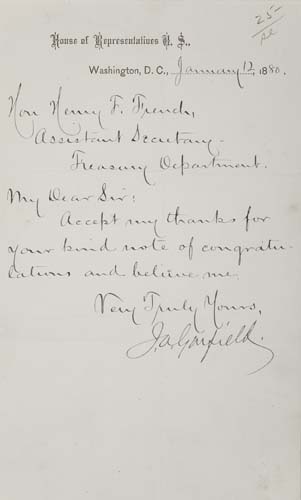 25-
House of Representatives U. S.,
Washington, D. C., January 12, 1880.
Hon Henry F. French,
Assistant Secretary-
Treasury Department.
My Dear Sir:
Accept my thanks for
your kind note of congratu-
lations and believe me.
Very Truly Yours,
J.A. Garfield.